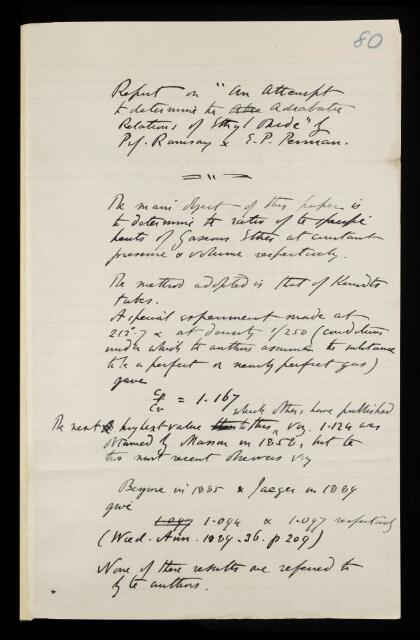 80
Report on "An Attempt
to determine the Adiabatic
Relations of Ethyl Oxide" by
Prof. Ramsay & E.P. Perman.
The main object of this paper is
to determine the ratio of the specific
heats of Gaseous Ether at constant
pressure & volume respectively.
The method adopted is that of Kundt's
tubes.
A special experiment made at
212°.7 & at density 1/250 (conditions
under which the authors assume the substance
to be a perfect or nearly perfect gas)
gave
Cp/Cv = 1.167
which others have published
The next highest value to this, viz. 1.124 was
obtained by Masson in 1858, but the
two most recent observers viz
Beyme in 1885 & Jaeger in 1889
give
1.097 1.094 & 1.097 respectively
(Wied. Ann. 1889. 36. p 209)
None of these results are referred to
by the authors.